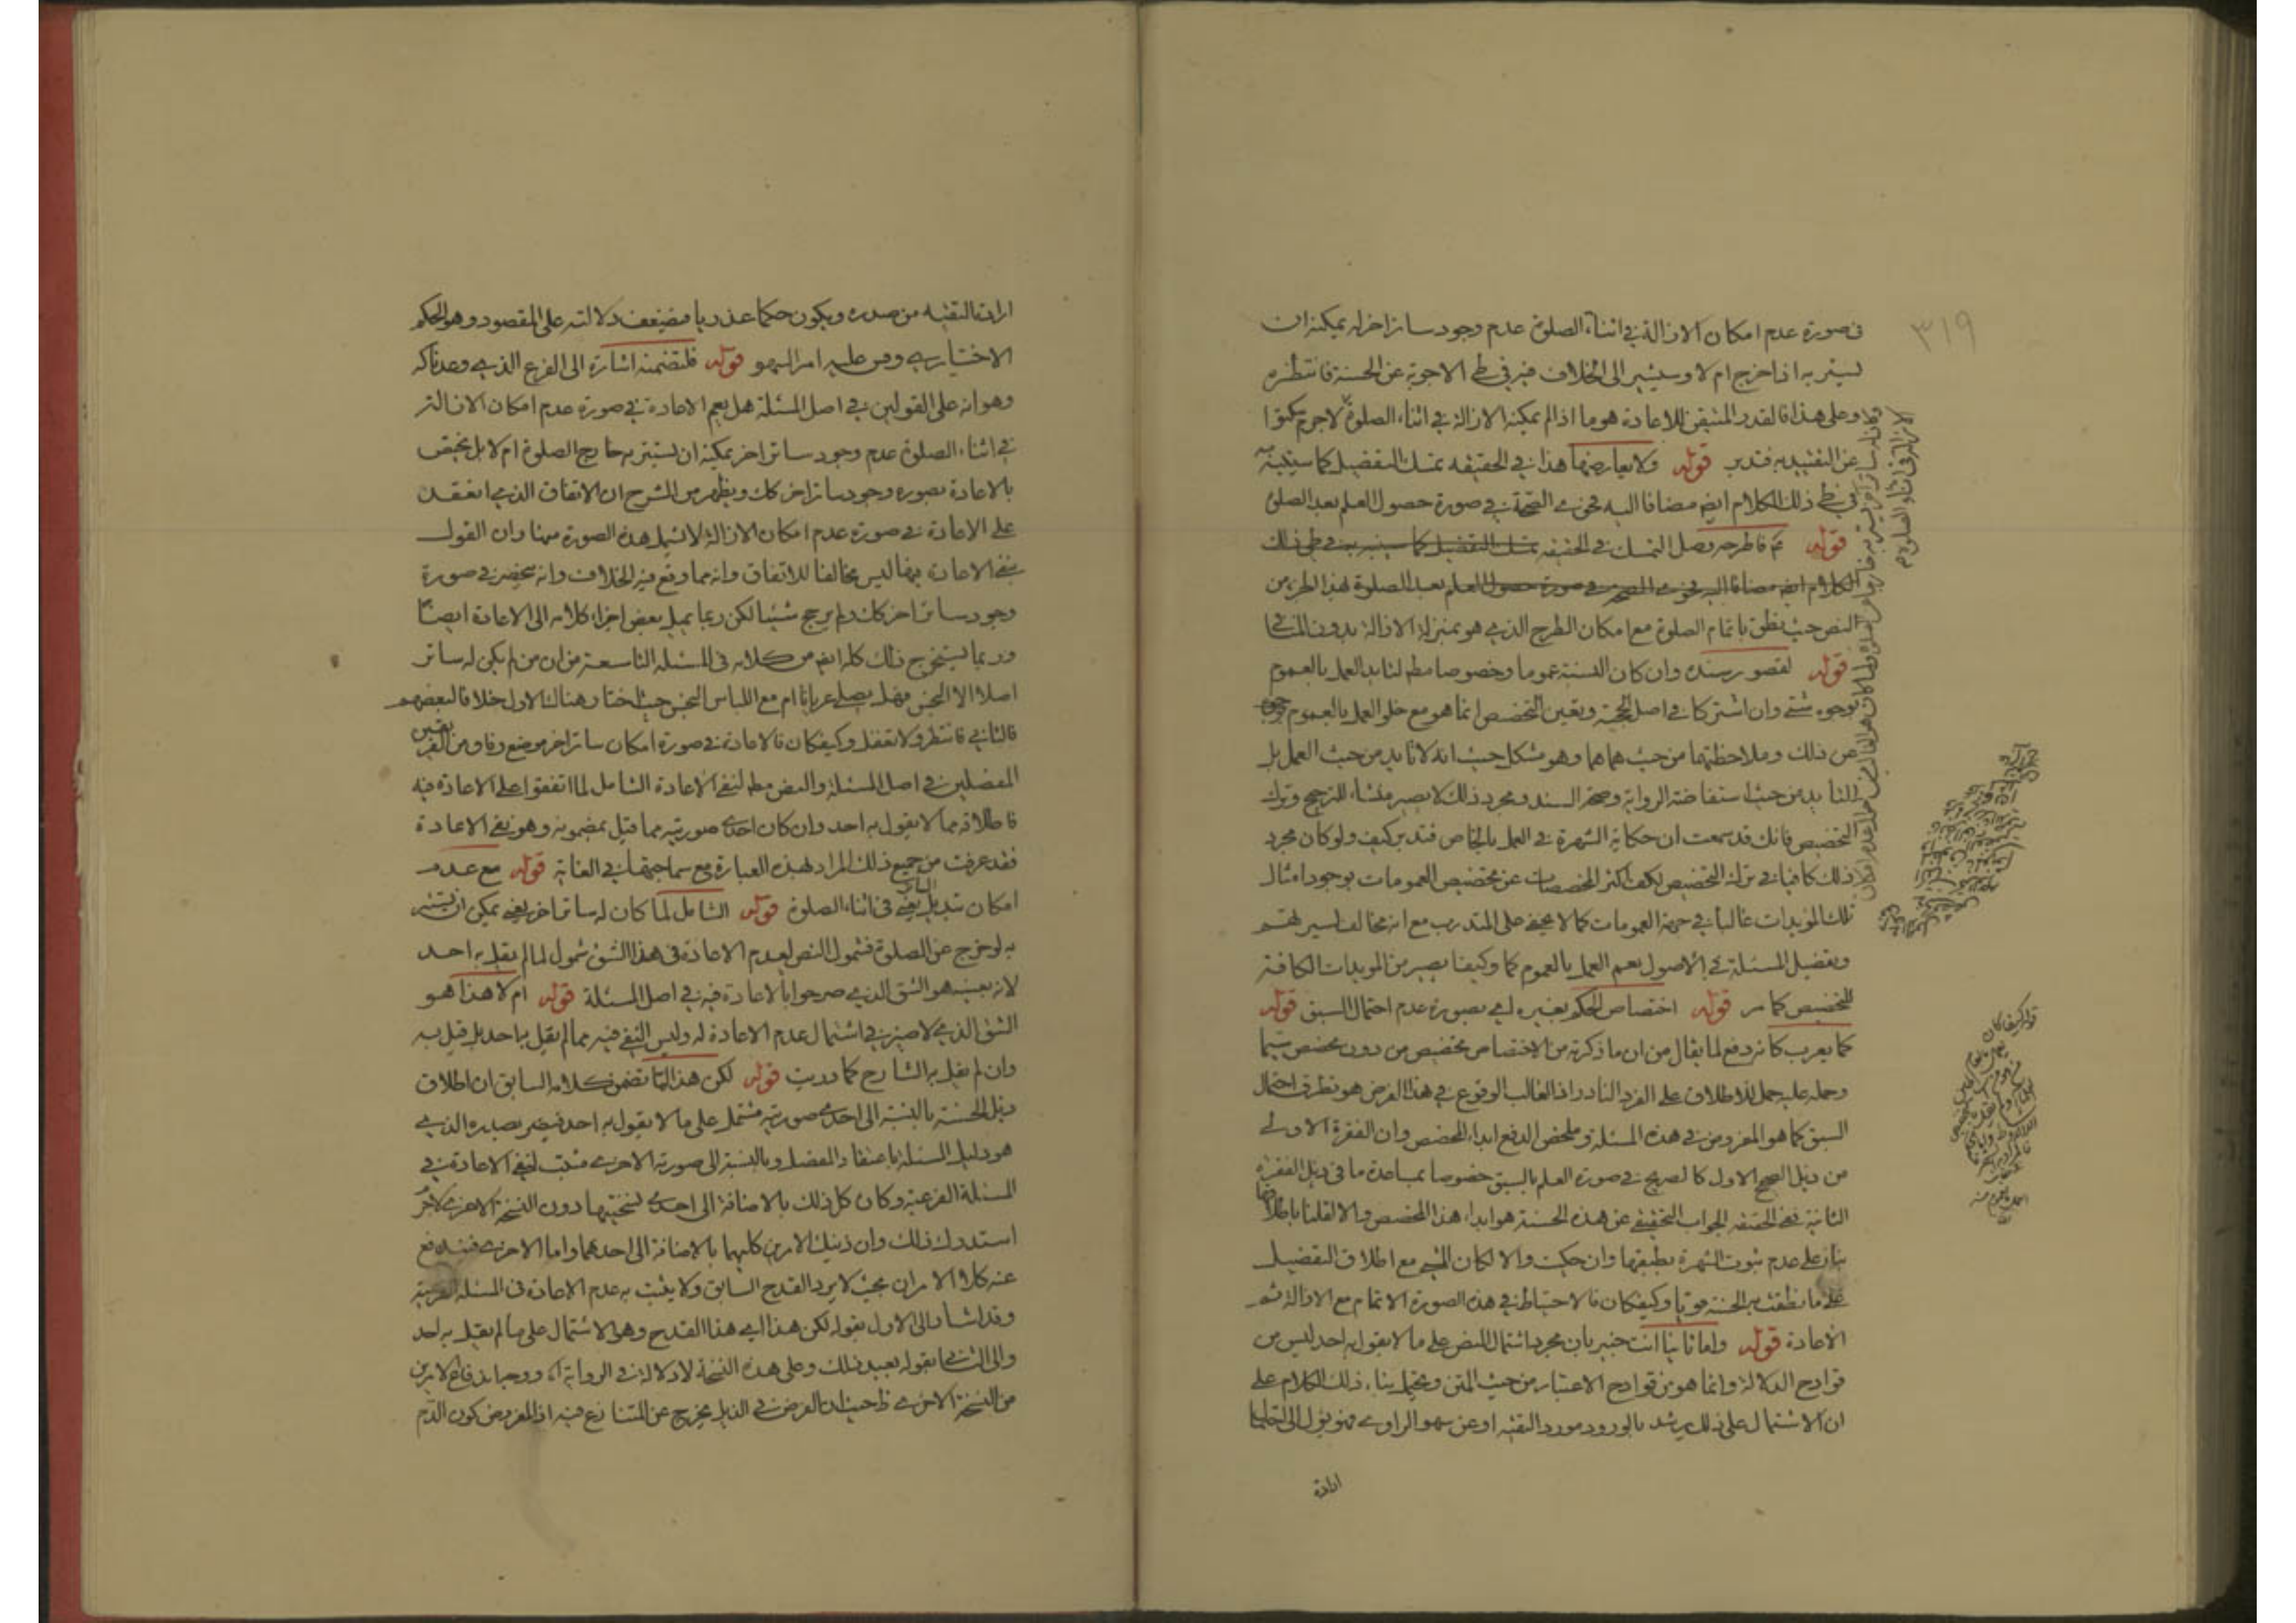 ٣١٩
في صورة عدم امكان الازالة في اثناء الصلوة عدم وجود ساتر اخر له يمكنه ان
يستتر به اذا خرج ام لا وسيشير الى الخلاف فيه في طي الاجوبة عن الحسنة فانتظره
وعلى هذا فالقدر المتيقن للاعادة هو ما اذا لم يمكنه الازالة في اثناء الصلوة لاجرم
عن التقييد به فتدبر قوله ولا يعارضها هذا في الحقيقة تمسك التفصيل كما سينبه
في طي ذلك الكلام ايضا مضافا اليه فحوى الصحة في صورة حصول العلم بعد الصلوة
قوله ثم فاطرحه وصل التمسك في الحقيقة تمسك التفصيل كما سينبه به في طي ذلك
الكلام ايضا مضافا اليه فحوى الصحة في صورة حصول العلم بعد الصلوة لهذا الطرح من
النص حيث نطق باتمام الصلوة مع امكان الطرح الذي هو بمنزلة الازالة بدون المنافي
قوله لقصور سنده وان كان النسبة عموما وخصوصا مط لتايد العمل بالعموم
بوجوه شتى وان اشتركا في اصل الحجية وتعين التخصيص انما هو مع خلو العمل بالعموم
عن ذلك وملاحظتهما من حيث هما هما وهو مشكل حيث انه لا تايد من حيث العمل بل
التايد من حيث استفاضة الرواية وصحة السند ومجرد ذلك لا يصير منشاء للترجيح وترك
التخصيص فانك قد سمعت ان حكاية الشهرة في العمل بالخاص فتدبر كيف ولو كان مجرد
ذلك كافيا في ترك التخصيص لكف اكثر المخصصات عن تخصيص العمومات بوجود امثال
تلك المؤيدات غالبا في جهة العمومات كما لا يخفى على المتدرب مع انه مخالف لسيرتهم
وتفصيل المسئلة في الاصول نعم العمل بالعموم كما وكيفا يصير من المويدات الكافة
للتخصيص كما مر قوله اختصاص الحكم بغيره اي بصورة عدم احتمال السبق قوله
كما يعرب كانه دفع لما يقال من ان ما ذكرته من الاختصاص تخصيص من دون مخصص سيما
وحمله عليه حمل للاطلاق على الفرد النادر اذ الغالب الوقوع في هذا الفرض هو تطرق احتمال
السبق كما هو المفروض في هذه المسئلة وملخص الدفع ابداء المخصص وان الفقرة الاولى
من ذيل الصحيح الاول كالصريح في صورة العلم بالسبق خصوصا بمساعدة ما في ذيل الفقرة
الثانية ففي الحقيقة الجواب التحقيقي عن هذه الحسنة هو ابداء هذا المخصص والا لقلنا باطلاقها
بناء على عدم ثبوت الشهرة بطبقها وان حكيت والا لكان المتجه مع اطلاق التفصيل
على ما نطقت به الحسنة قويا وكيفكان فالاحتياط في هذه الصورة الاتمام مع الازالة ثم
الاعادة قوله واما ثانيا انت خبير بان مجرد اشتمال النص على ما لا يقول به احد ليس من
قوادح الدلالة وانما هو من قوادح الاعتبار من حيث المتن ويحتمل بناء ذلك الكلام على
ان الاشتمال على ذلك يرشد بالورود مورد التقية او عن سهو الراوي فيؤول الى احتمال
ارادة
ارادة التقية من صدره ويكون حكما عذريا فيضعف دلالته على المقصود وهو الحكم
الاختياري وقس عليه امر السهو قوله فلتضمنه اشارة الى الفرع الذي وعدناكه
وهو انه على القولين في اصل المسئلة هل يعم الاعادة في صورة عدم امكان الازالة
في اثناء الصلوة عدم وجود ساتر اخر يمكنه ان يستتر به خارج الصلوة ام لا بل يختص
بالاعادة بصورة وجود ساتر اخر كك ويظهر من الشرح ان الاتفاق الذي انعقد
على الاعادة في صورة عدم امكان الازالة لا يشمل هذه الصورة منها وان القول
بنفي الاعادة فيها ليس مخالفا للاتفاق وانه مما وقع فيه الخلاف وانه ينحصر في صورة
وجود ساتر اخر كك ولم يرجح شيئا لكن ربما يميل بعض اجزاء كلامه الى الاعادة ايضا
وربما يستخرج ذلك كله ايضا من كلامه في المسئلة التاسعة من ان من لم يكن له ساتر
اصلا الا النجس فهل يصلي عريانا ام مع اللباس النجس حيث اختار هنالك الاول خلافا لبعضهم
فالثاني فانتظر ولا تغفل وكيفكان فالاعادة في صورة امكان ساتر اخر موضع وفاق من الفريقين
المفصلين في اصل المسئلة والنص مط لنفي الاعادة الشامل لما اتفقوا على الاعادة فيه
فاطلاقه مما لا يقول به احد وان كان احدى صورتيه مما قيل بمضمونه وهو نفي الاعادة
فقد عرفت من جميع ذلك المراد لهذه العبارة مع سماجتها في الغاية قوله مع عدم
امكان تبديل الساتر يعني في اثناء الصلوة قوله الشامل لما كان له ساتر اخر يعني يمكن ان يستتر
به لو خرج عن الصلوة فشمول النص لعدم الاعادة في هذا الشق شمول لما لم يقل به احد
لانه بعينه هو الشق الذي صرحوا بالاعادة فيه في اصل المسئلة قوله ام لا هذا هو
الشق الذي لا ضير في اشتمال عدم الاعادة له وليس النفي فيه مما لم يقل به احد بل قيل به
وان لم يقل به الشارح كما دريت قوله لكن هذا لما تضمن كلامه السابق ان اطلاق
ذيل الحسنة بالنسبة الى احدى صورتيه مشتمل على ما لا يقول به احد فيضر بصدره الذي
هو دليل المسئلة باعتقاد المفصل وبالنسبة الى صورته الاخرى مثبت لنفي الاعادة في
المسئلة الفرعية وكان كل ذلك بالاضافة الى احدى نسختيها دون النسخة الاخرى
استدرك ذلك وان ذينك الامرين كليهما بالاضافة الى احدهما واما الاخرى فيندفع
عنه كلا الامران بحيث لا يرد القدح السابق ولا يثبت به عدم الاعادة في المسئلة الفرعية
وقد اشار الى الاول بقوله لكن هذا اي هذا القدح وهو الاشتمال على ما لم يقل به احد
والى الثاني بقوله بعيد ذلك وعلى هذه النسخة لا دلالة في الرواية اه ووجه اندفاع الامرين
من النسخة الاخرى ظ حيث ان الفرض في الذيل يخرج عن المتنازع فيه اذ المفروض كون الدم